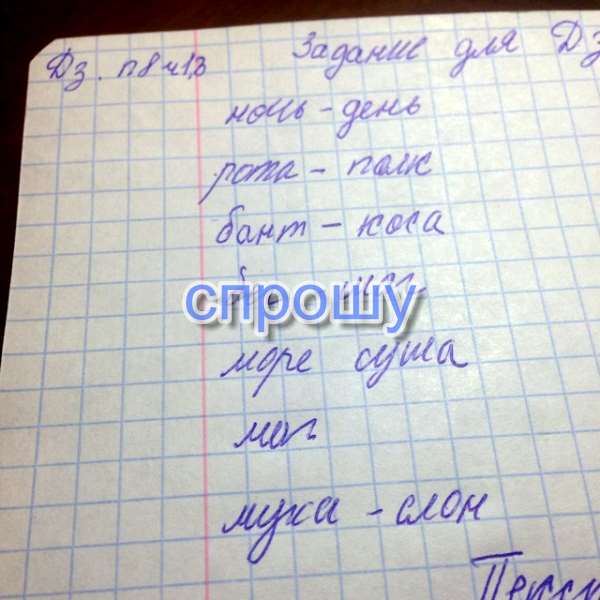 Дз. п8 ч1,3 Задание для Дз
ночь - день
рота - полк
бант - коса
спрошу
море суша
муха - слон